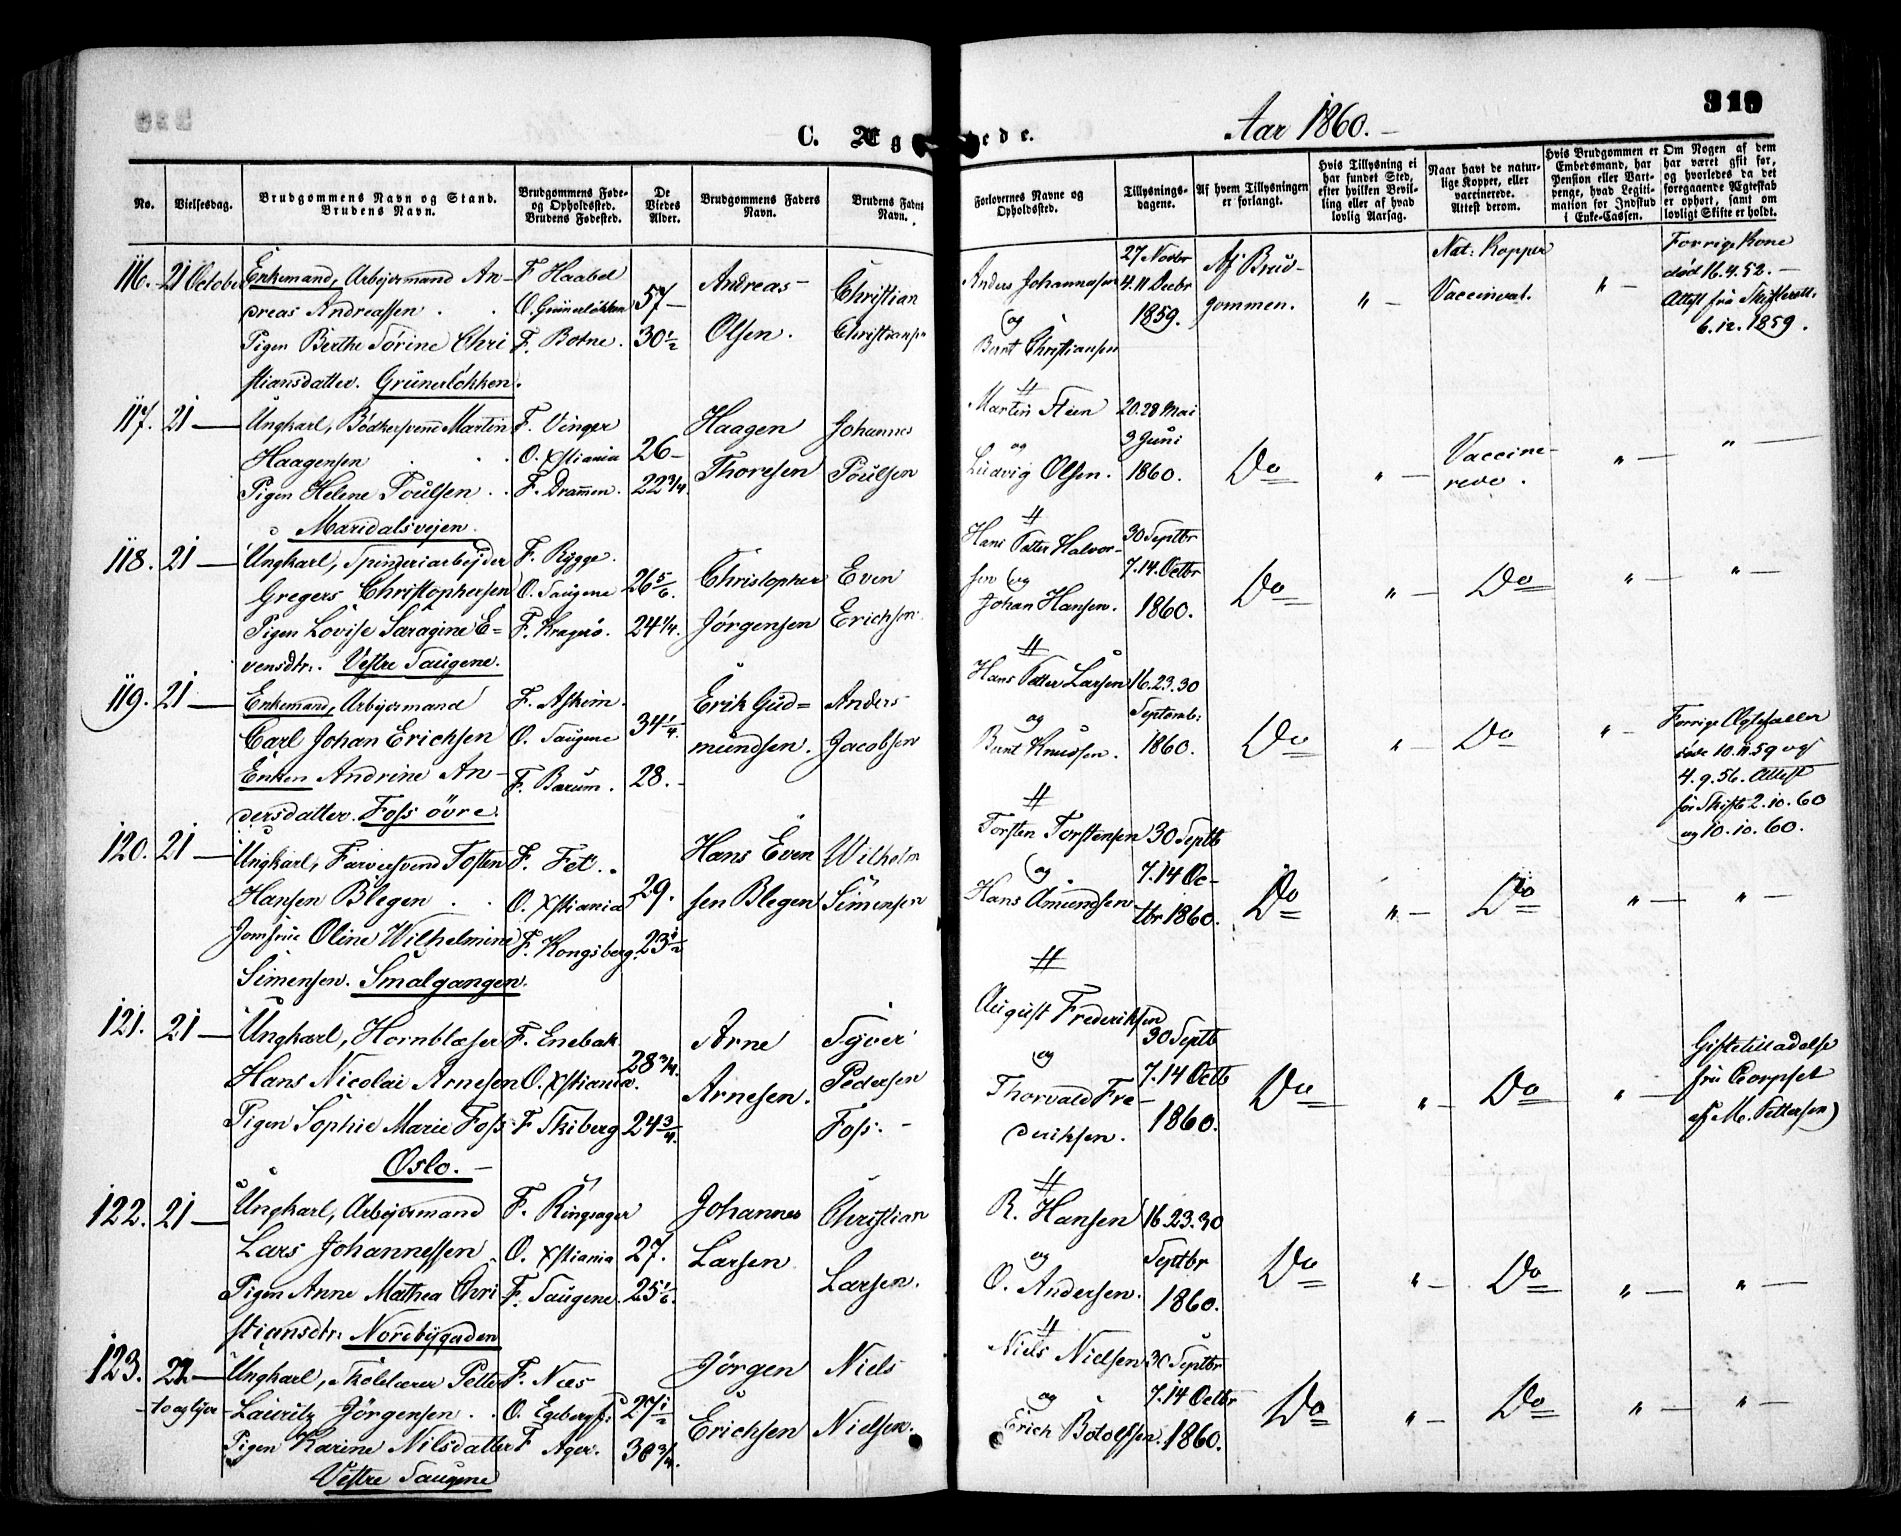 319
C. Ægteviede.
Aar 1860.
No.
Vielsesdag.
Brudgommens Navn og Stand.
Brudens Navn.
Brudgommens Føde-
og Opholdssted.
Brudens Fødested.
De
Viedes
Alder.
Brudgommens Faders
Navn.
Brudens Faders
Navn.
Forlovernes Navne og
Opholdssted.
Tillysnings-
dagene.
Af hvem Tillysningen
er forlangt.
Hvis Tillysning ei
har fundet Sted,
efter hvilken Bevil-
ling eller af hvad
lovlig Aarsag.
Naar havt de natur-
lige Kopper, eller
vaccinerede.
Attest derom.
Hvis Brudgommen er
Embedsmand, har
Pension eller Vart-
penge, hvad Legiti-
mation for Indskud
i Enke-Cassen.
Om Nogen af dem
har været gift før,
og hvorledes da det
foregaaende Ægteskab
er ophørt, samt om
lovligt Skifte er holdt.
116. 21 October Enkemand, Arbeidsmand An-
dreas Andreassen
Pigen Berthe Sørine Chri
stiansdatter. Grünerløkken.
F. Haabøl
O. Grünerløkken
F. Botne.
57
30 1/2
Andreas
Olsen.
Christian
Christiansen
Anders Johannesen
og
Bernt Christiansen
27 Novbr
4. 11 Decbr
1859.
Af Brud-
gommen.
" —
Nat: Kopper
Vaccinerat.
" —
Forrige Kone
død 16.4.52. —
Attest fra Skifterett.
6.12.1859.
117. 21 — Ungkarl, Bødkersvend Martin
Haagensen
Pigen Helene Poulsen
Maridalsvejen.
F. Vinger
O. Xstiania
F. Drammen.
26
22 3/4.
Haagen
Thoresen
Johannes
Poulsen
Martin Steen
og
Ludvig Olsen.
20. 28 Mai
3 Juni
1860.
Do
" —
Vaccine-
rede.
" —
" —
118. 21 — Ungkarl, Spinderiarbejder
Gregers Christophersen
Pigen Lovise Saragine E-
vensdtr. Vestre Saugene.
F. Rygge.
O. Saugene
F. Kragerø.
26 5/6.
24 1/4.
Christopher
Jørgensen
Even
Erichsen
Hans Petter Halvor-
sen og
Johan Hansen.
30 Septbr
7. 14. Octbr
1860.
Do
" —
Do
" —
" —
119. 21 — Enkemand, Arbejdsmand
Carl Johan Erichsen
Enken Andrine An-
dersdatter. Foss øvre.
F. Askim.
O. Saugene
F. Bærum.
34 1/4.
28.
Erik Gud=
mundsen.
Anders
Jacobsen
Hans Petter Larsen
og
Bernt Knudsen.
16. 23. 30
Septemb:
1860.
Do
" —
Do
" —
Forrige Ægtefæller
døde 10.11.59 og
4. 9. 56. Attest
for Skifte 2.10.60
og 10.10.60.
120. 21 — Ungkarl, Farversvend Tosten
Hansen Blegen
Jomfrue Oline Wilhelmine
Simensen. Smalgangen.
F. Fet.
O. Xstiania
F. Kongsberg.
29.
23 1/2
Hans Even
sen Blegen
Wilhelm
Simensen
Torsten Torstensen
og
Hans Amundsen
30 Septb
7. 14 Oc-
tbr 1860.
Do
" —
Do
" —
" —
121. 21 — Ungkarl, Hornblæser
Hans Nicolai Arnesen
Pigen Sophie Marie Foss
Oslo. —
F. Enebak
O. Xstiania.
F. Skiberg
28 3/4.
24 3/4.
Arne
Arnesen.
Syver
Pedersen
Foss.
August Frederiksen
og
Thorvald Fre-
deriksen.
30 Septb
7. 14 Octb
1860.
Do
" —
Do
" —
Giftetilladelse
fra Corpset
af M. Pettersen)
122. 21 — Ungkarl, Arbejdsmand
Lars Johannessen
Pigen Anne Mathea Chri
stiansdtr: Nordbygaden
F. Ringsager
O. Xstiania
F. Saugene.
27.
25 1/6.
Johannes
Larsen
Christian
Larsen.
R. Hansen
og
O. Andersen.
16. 23. 30
Septbr
1860.
Do
" —
Do
" —
" —
123. 21 — Ungkarl, Skolelærer Petter
Lauritz Jørgensen
Pigen Karine Nilsdatter
Vestre Saugene
F. Næs
F. Ager.
27 1/2
30 3/4.
Jørgen
Erichsen
Niels
Nielsen.
Niels Nielsen
og
Erich Botolfsen.
30 Septbr
7. 14 Octbr
1860.
Do
" —
Do
" —
" —